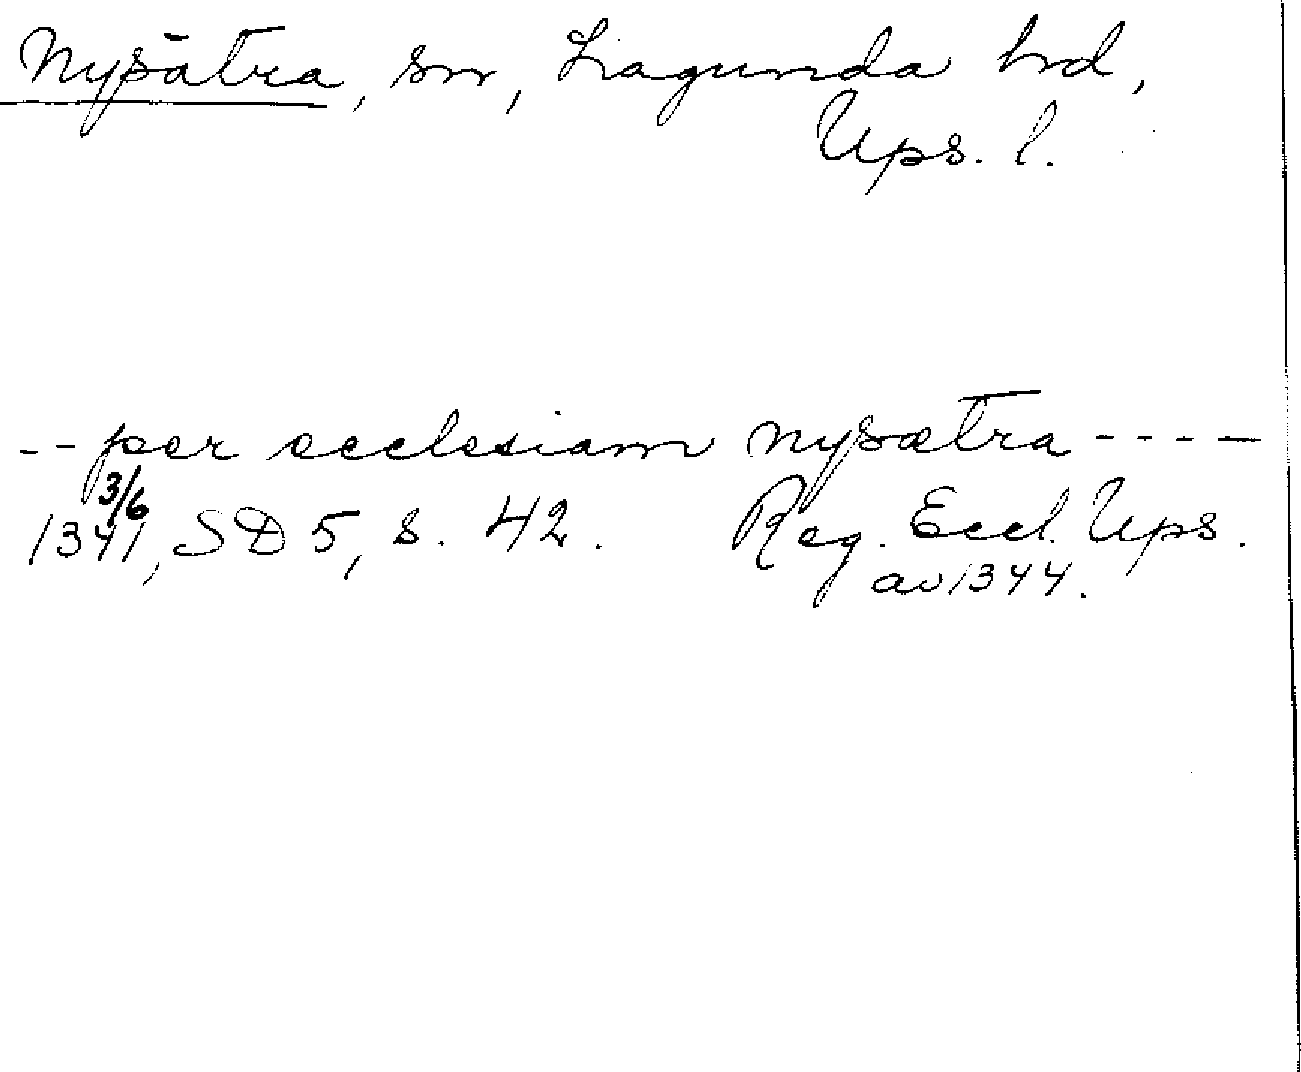 Nysätra, sn, Lagunda hd,
Ups. l.
-- per ecclesiam nysætra ----
3/6
1341, SD 5, s. 42. Reg. Eccl. Ups.
av 1344.